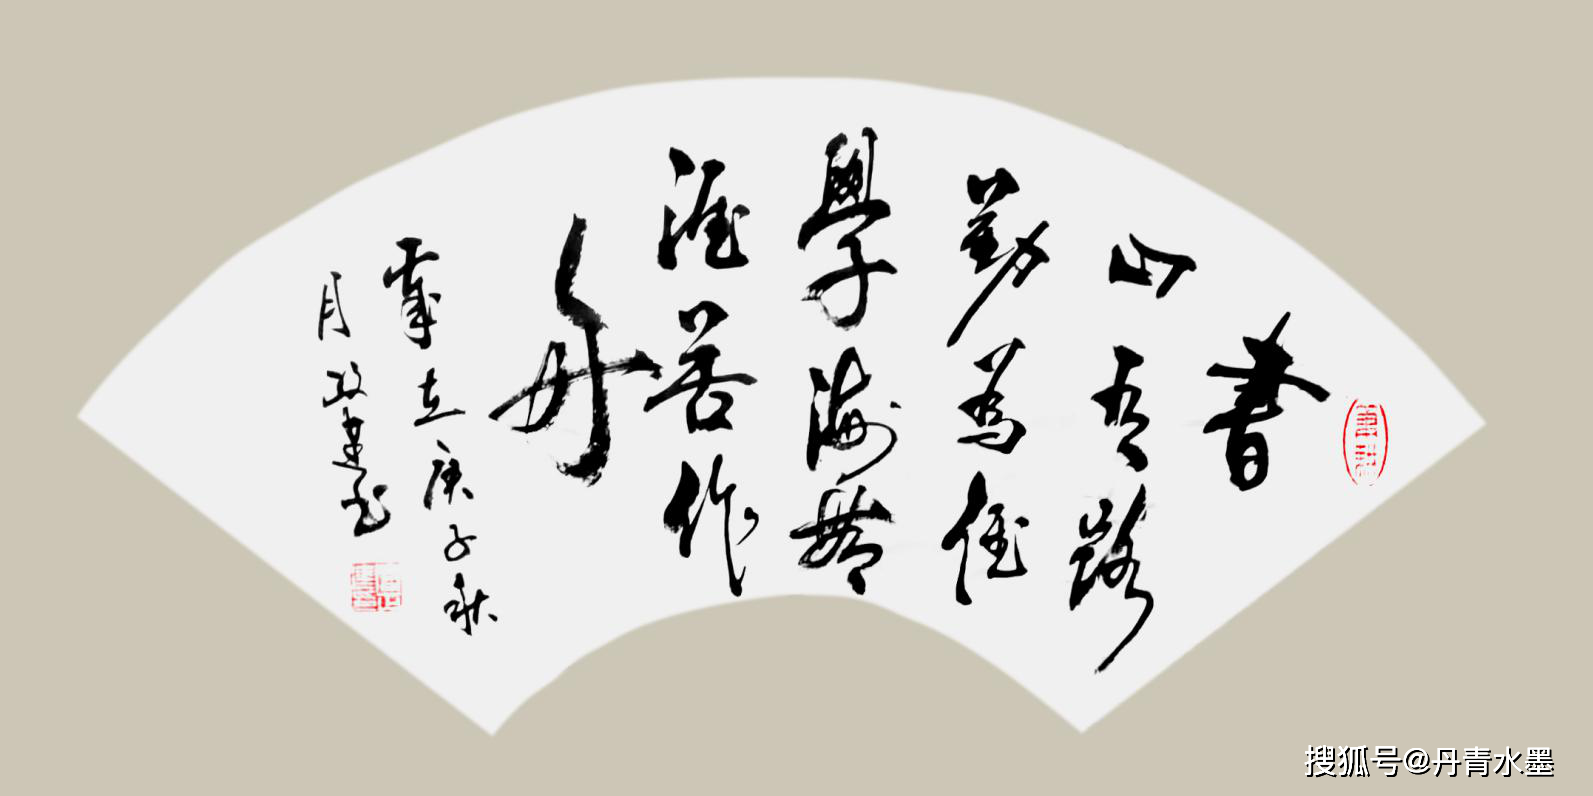 書
山有路
勤為徑
學海無
涯苦作
舟
歲在庚子秋
月政建书
搜狐号@丹青水墨